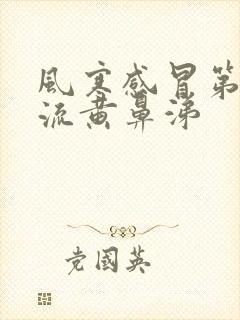 風寒感冒第
流黄鼻涕
党國英